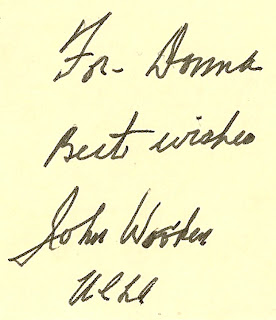 For- Donna
Best wishes
John Wooden
UCLA